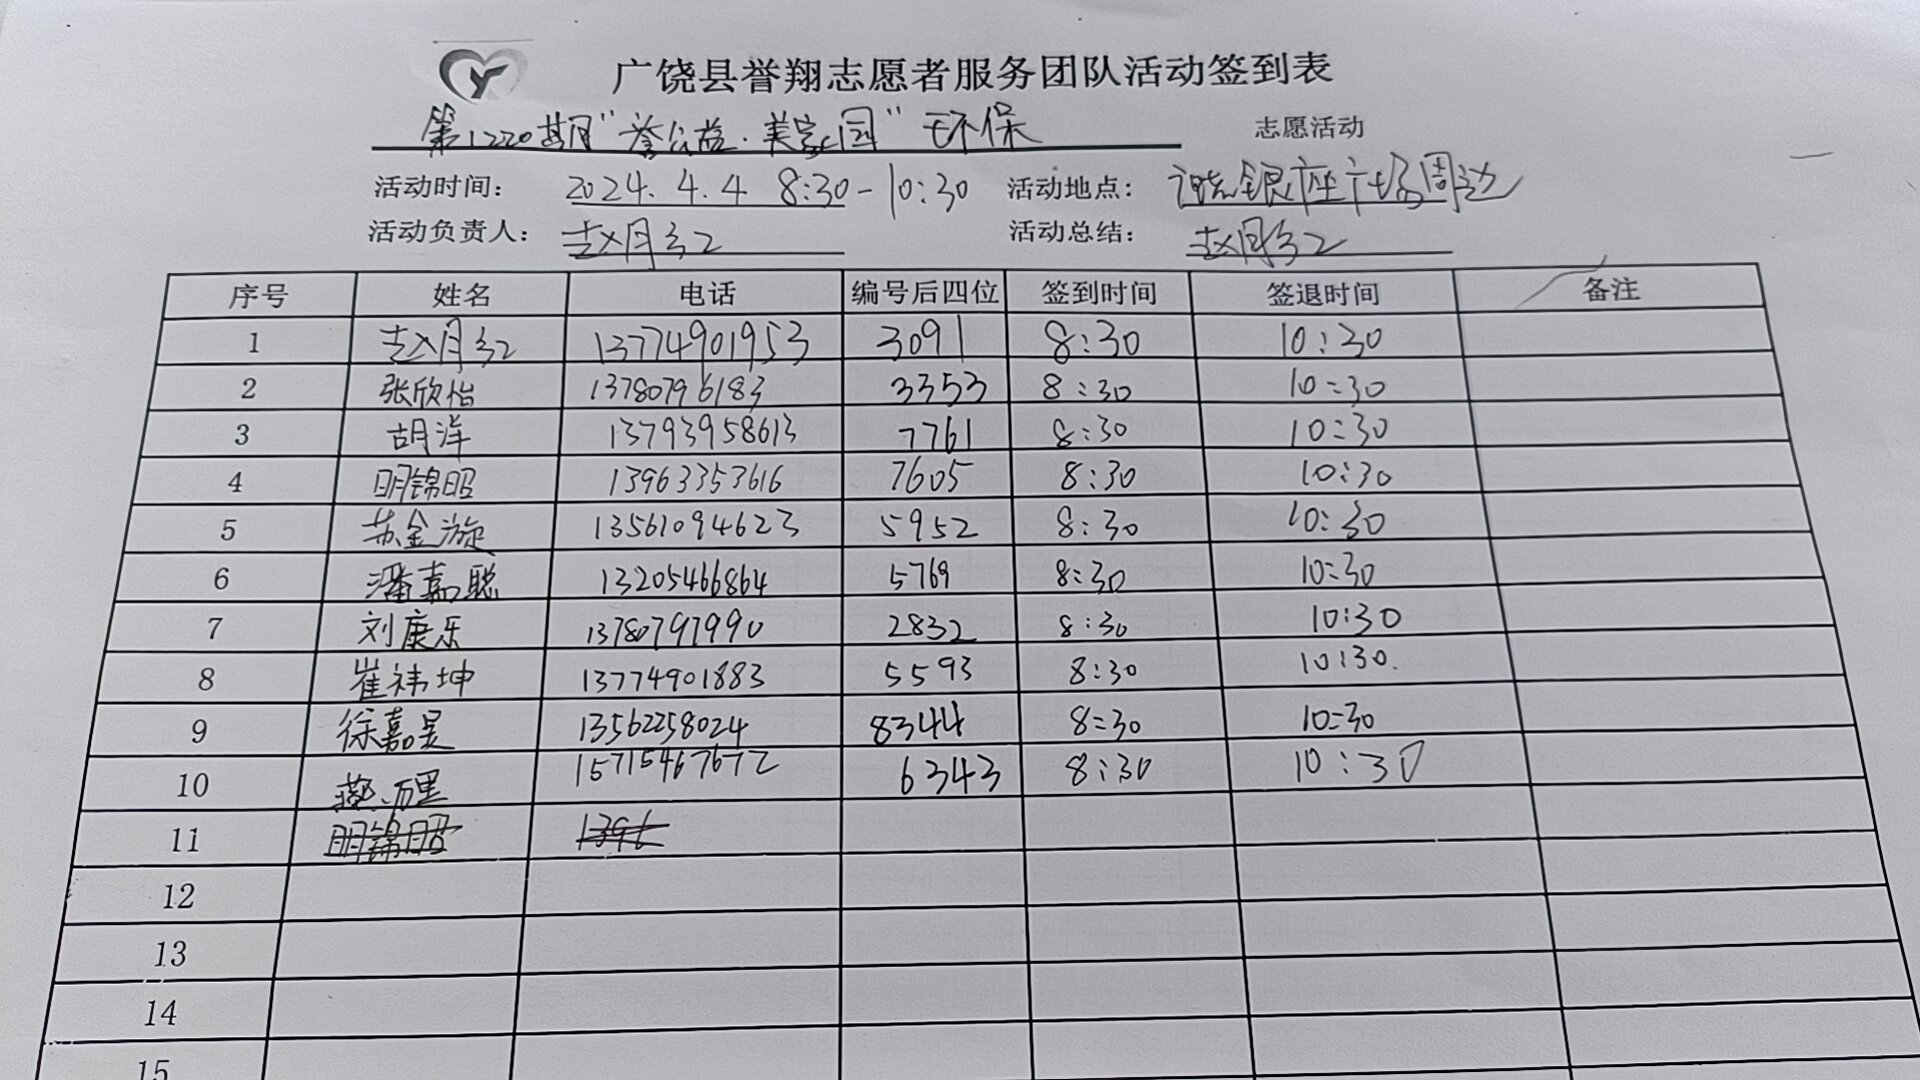 广饶县誉翔志愿者服务团队活动签到表
第1220期"誉公益·美家园"环保 志愿活动
活动时间: 2024.4.4 8:30-10:30 活动地点: 银座广场周边
活动负责人: 赵月红 活动总结: 赵月红
序号 姓名 电话 编号后四位 签到时间 签退时间 备注
1 赵月红 13774901953 3091 8:30 10:30
2 张欣怡 13780796183 3353 8:30 10:30
3 胡洋 13793958613 7761 8:30 10:30
4 明锦昭 13963353616 7605 8:30 10:30
5 苏金漩 13561094623 5952 8:30 10:30
6 潘嘉聪 13205466864 5769 8:30 10:30
7 刘康乐 13780797990 2832 8:30 10:30
8 崔祎坤 13774901883 5593 8:30 10:30.
9 徐嘉昱 13562258024 8344 8:30 10:30
10 15715467672 6343 8:30 10:30
11 明锦昭 1396
12
13
14
15